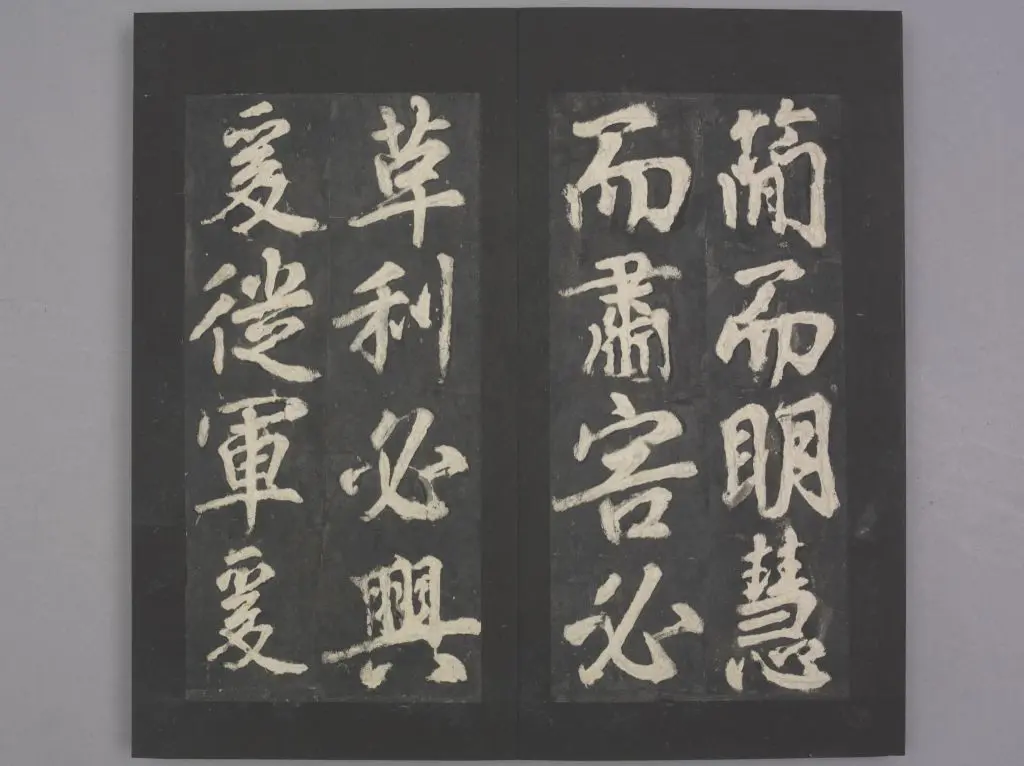 簡而明慧
而肅害必
革利必興
爰從軍爰